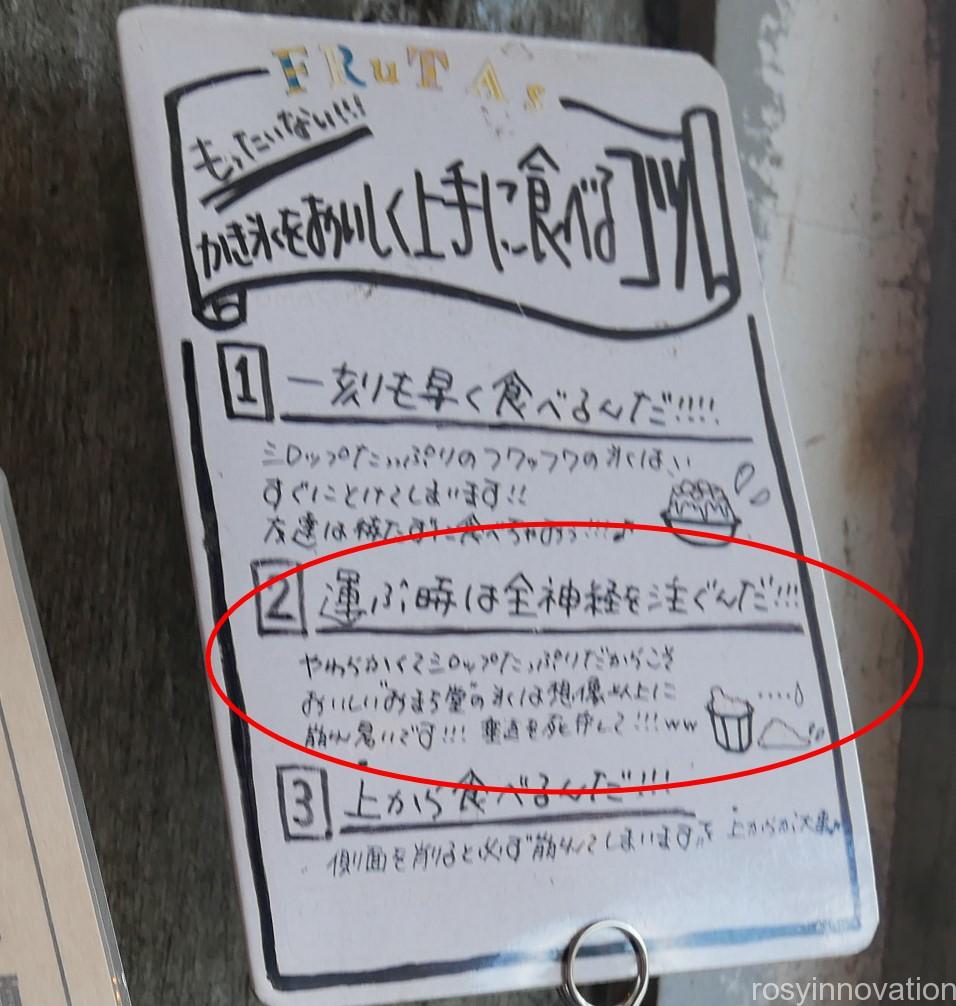 FRuTAs
もったいない!!!
かき氷をおいしく上手に食べるコツ
1 一刻も早く食べるんだ!!!!
ミロップたっぷりのフワッフワの氷はい
すぐにとけてしまいます!!
友達は待たずに食べちゃおう!!!♪
2 運ぶ時は全神経を注ぐんだ!!!
やわらかくてミロップたっぷりだからこそ
おいしい"おまち堂"の氷は想像以上に
崩れ易いです!!! 垂直を死守して!!!ww
3 上から食べるんだ!!!
側面を削ると必ず崩れてしまいます。 上からが大事
rosyinnovation